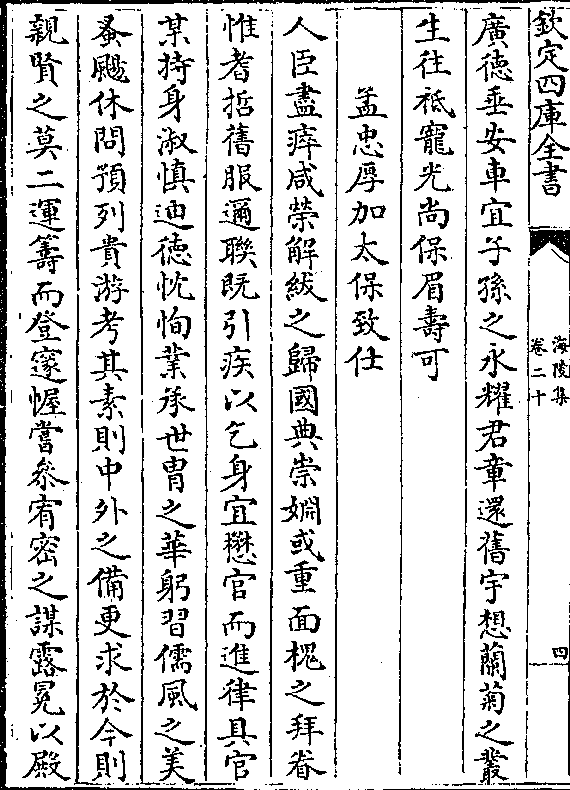 欽定四庫全書
海陵集
卷二十
四
廣德垂安車宜子孫之永耀君章還舊宇想蘭菊之叢
生往祗寵光尚保眉壽可
孟忠厚加太保致仕
人臣盡瘁咸榮解紱之歸國典崇婣或重面槐之拜眷
惟耆哲舊服邇聯既引疾以乞身宜懋官而進律具官
某持身淑慎迪德忱恂業承世胄之華躬習儒風之美
蚤颺休問預列貴游考其素則中外之備更求於今則
親賢之莫二運籌而登邃幄嘗叅宥密之謀露冕以殿